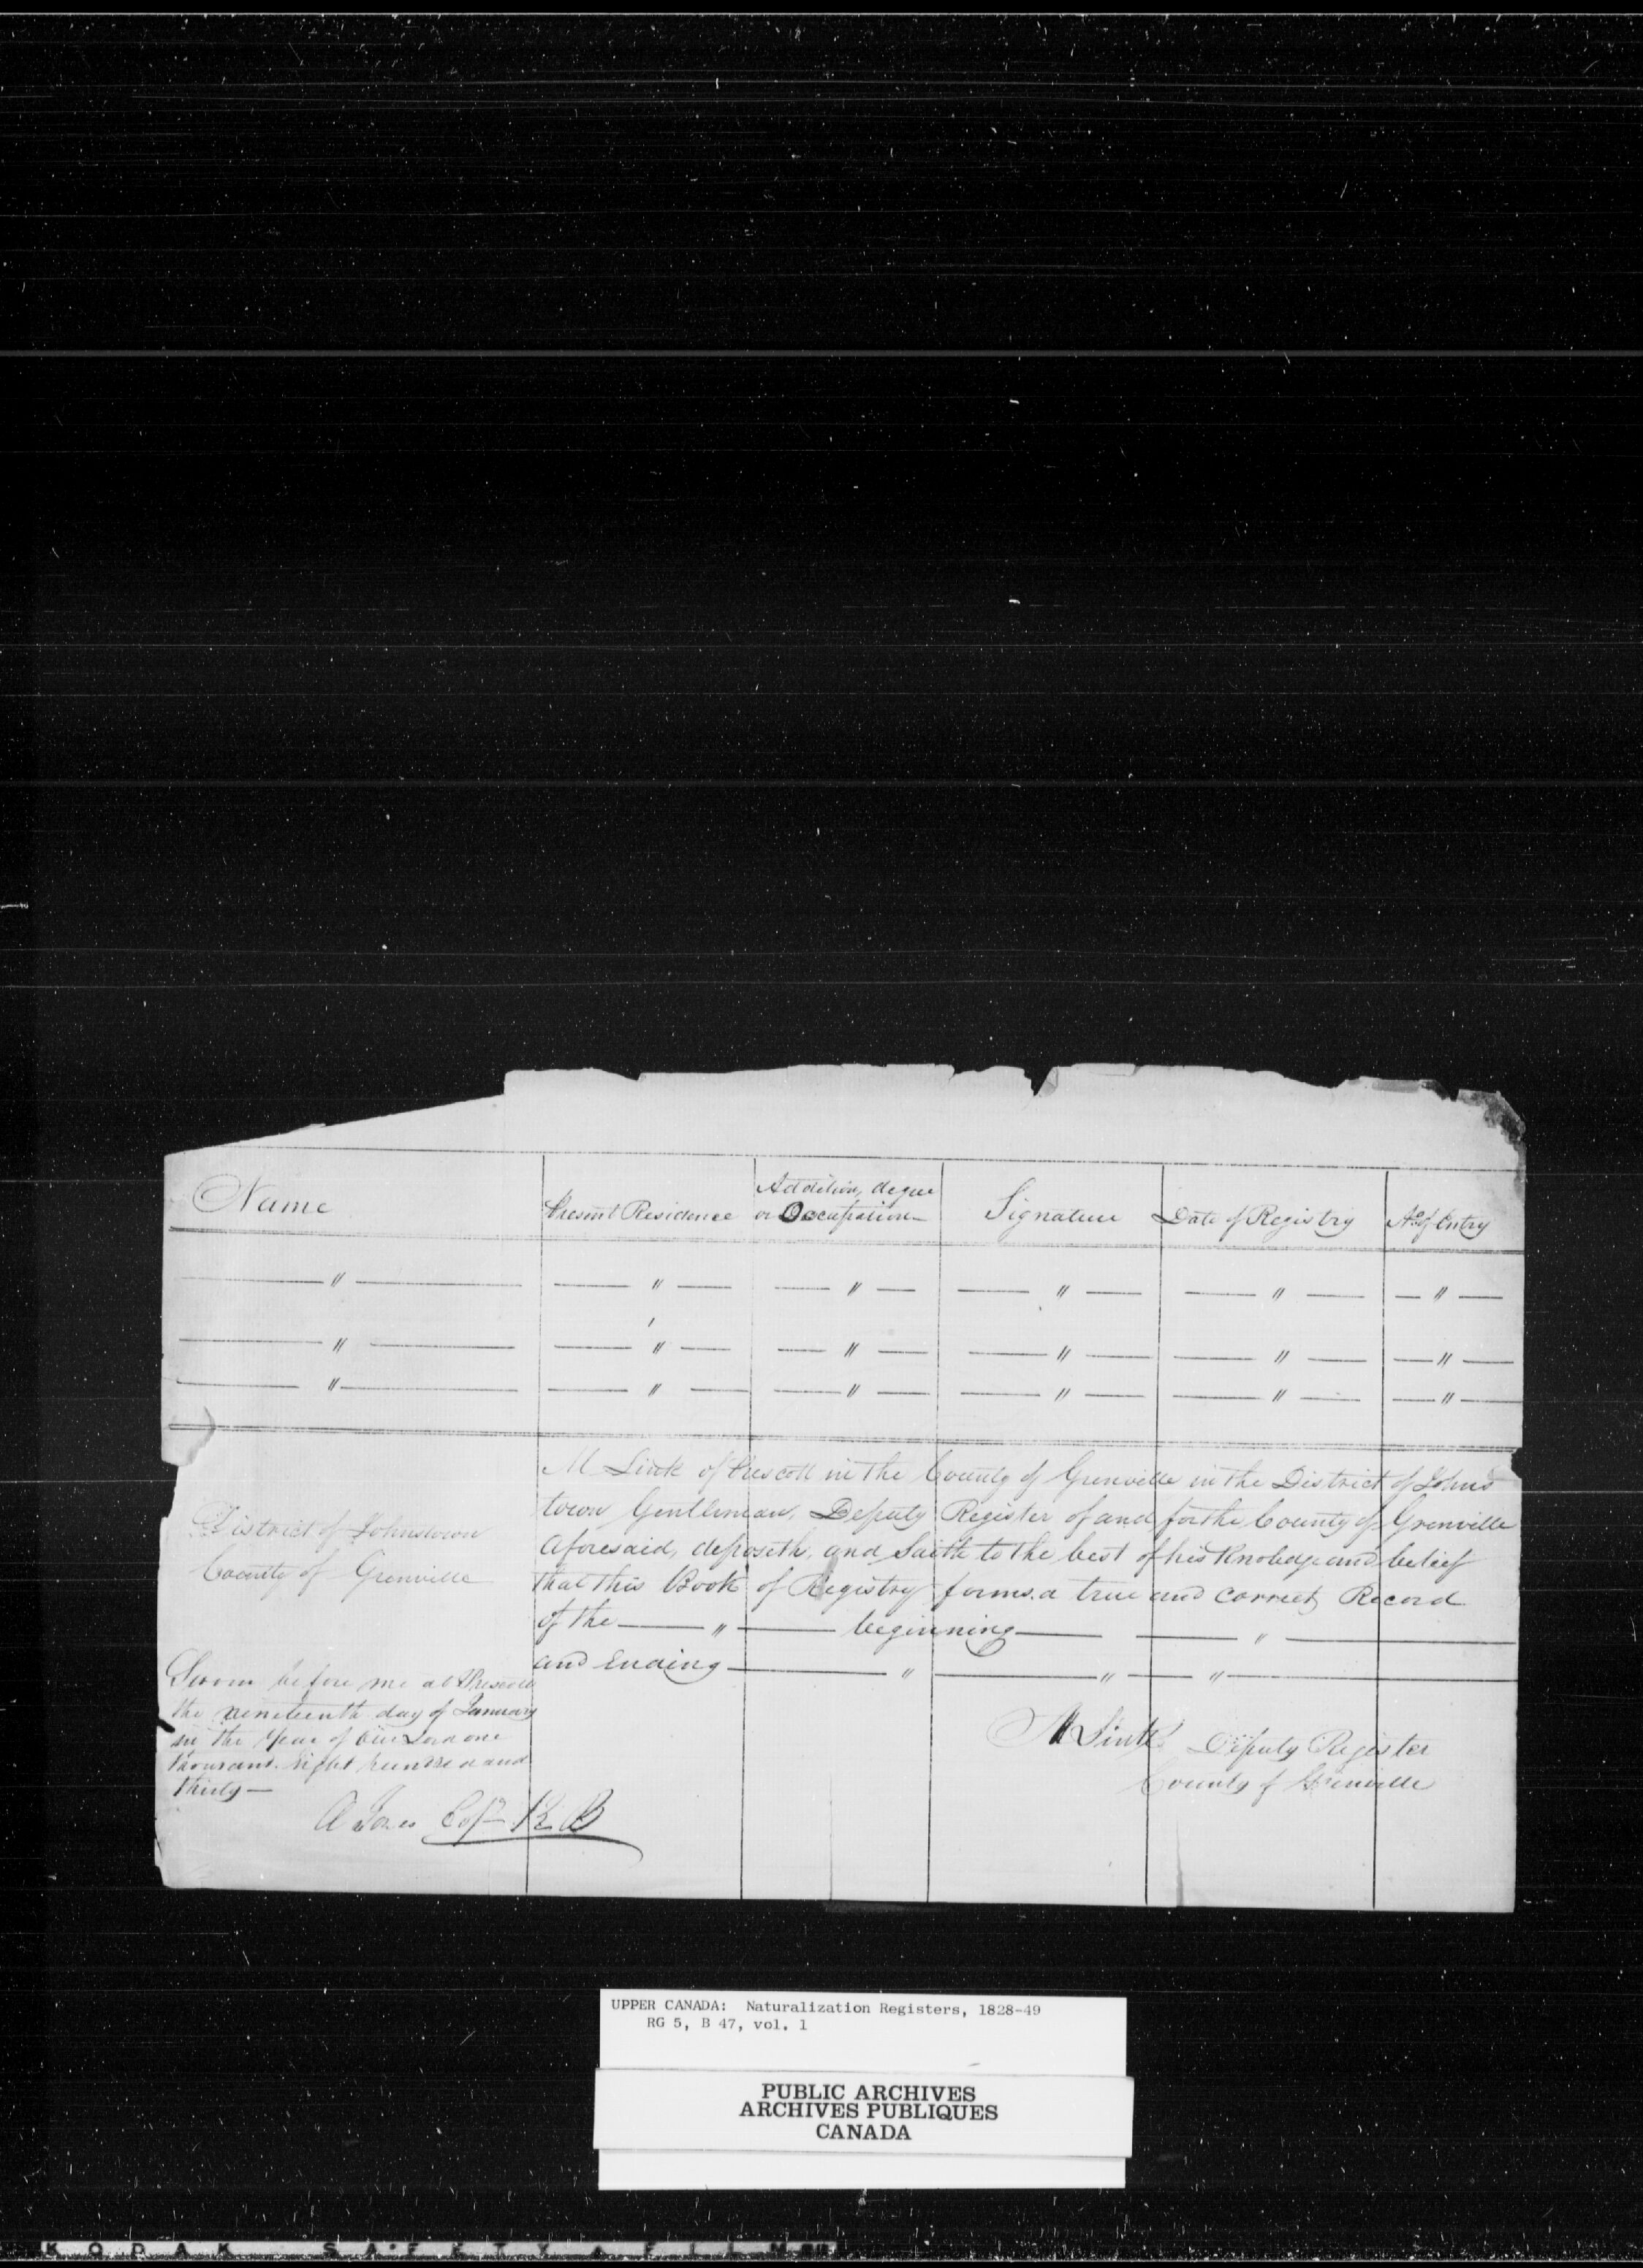 Name
Present Residence
Addition, degree
or Occupation
Signature
Date of Registry
No. of Entry
— " — — " — — " — — " — — " — — " —
— " — — " — — " — — " — — " — — " —
— " — — " — — " — — " — — " — — " —
District of Johnstown
County of Grenville
M Link of Prescott in the County of Grenville in the District of Johns
town Gentleman, Deputy Register of and for the County of Grenville
aforesaid, deposeth, and Saith to the best of his and belief
that this Book of Registry forms a true and correct Record
of the — " — beginning — — " —
and Ending — " — " — " —
Sworn before me at Prescott
the nineteenth day of January
in the Year of Our Lord one
thousand eight hundred and
thirty —
A Jones K B
M Link Deputy Register
County of Grenville
UPPER CANADA: Naturalization Registers, 1828-49
RG 5, B 47, vol. 1
PUBLIC ARCHIVES
ARCHIVES PUBLIQUES
CANADA
KODAK SAFETY FILM